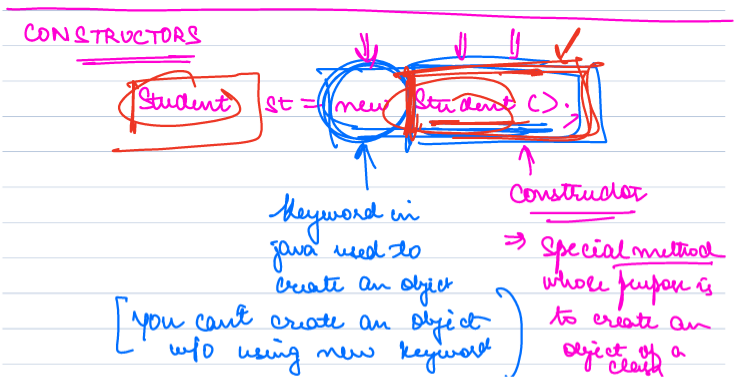 CONSTRUCTORS
Student st = new Student ();
Keyword in
java used to
create an object
[You can't create an object
w/o using new keyword]
Constructor
⇒ Special method
whose purpose is
to create an
object of a
class